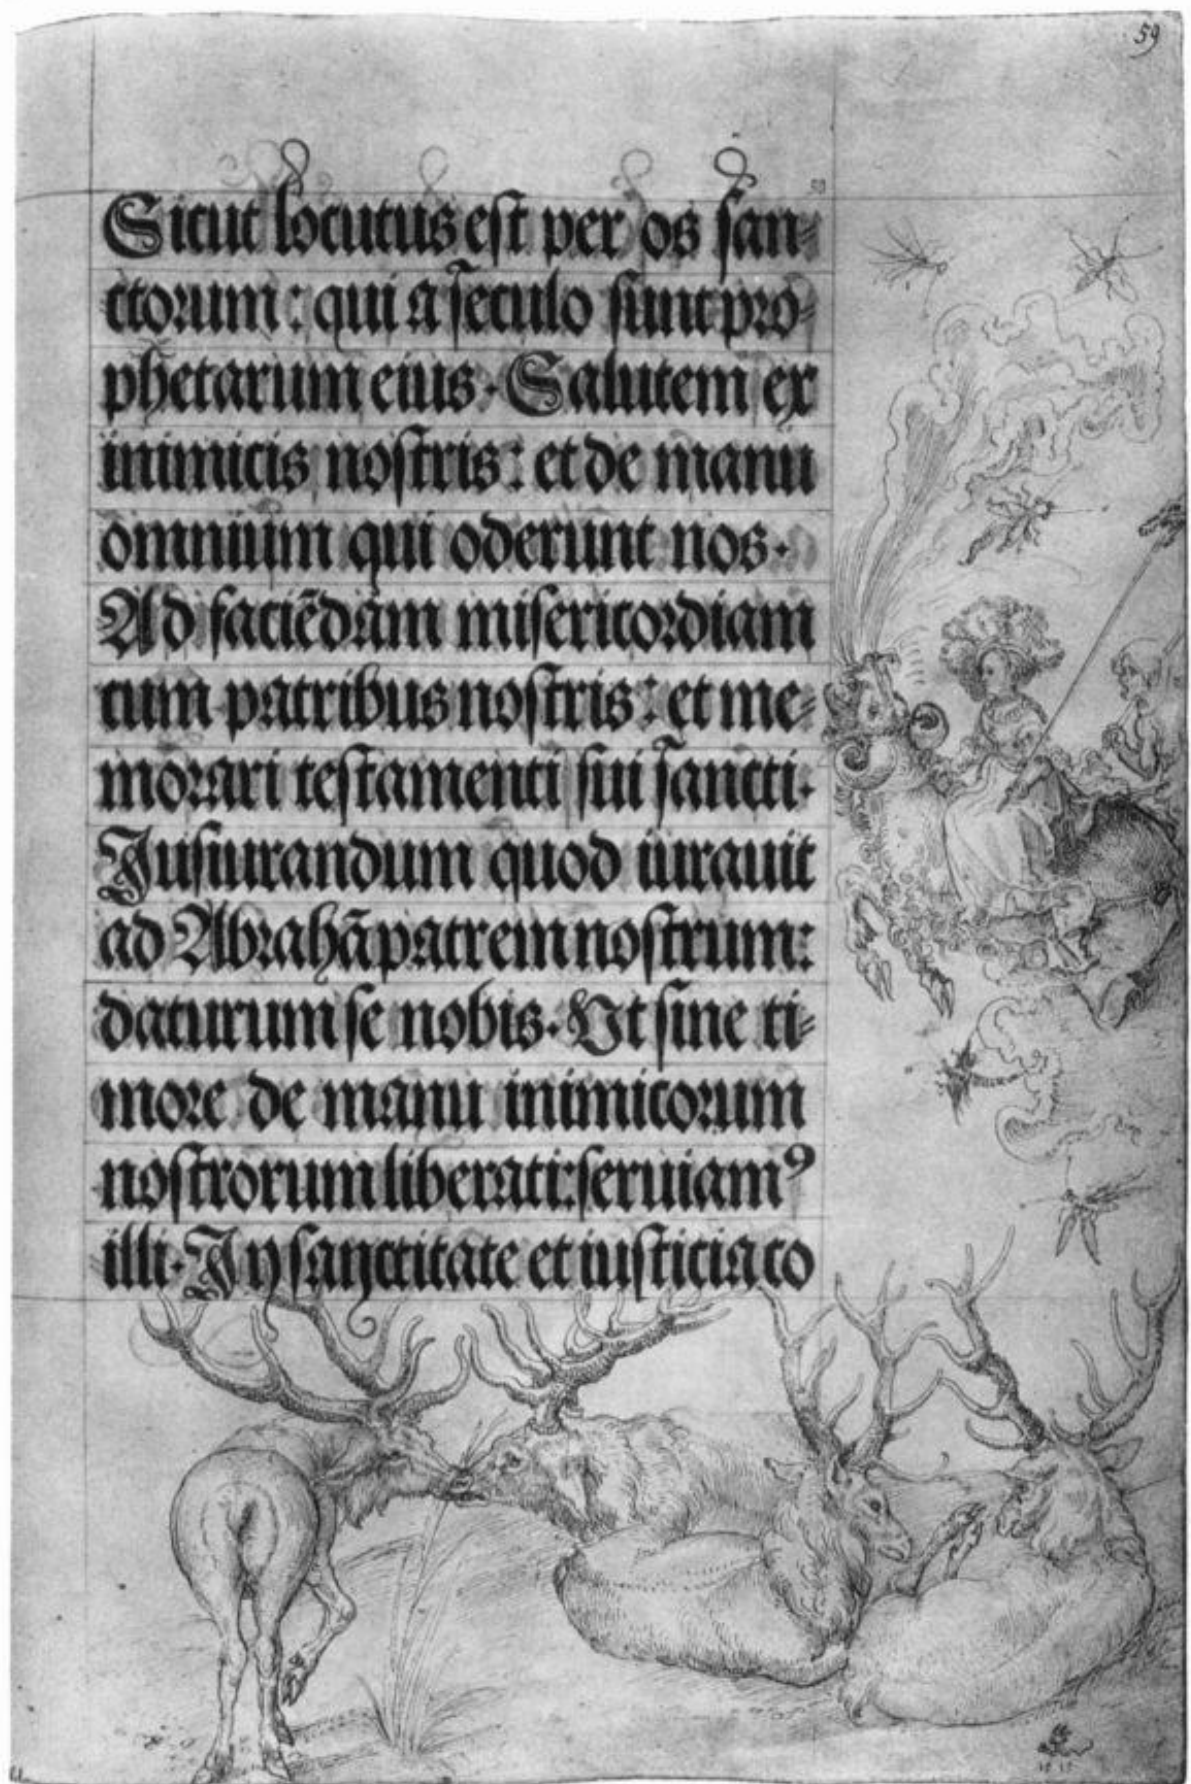 59
Sicut locutus est per os san⸗
ctorum: qui a seculo sunt pro⸗
phetarum eius. Salutem ex
inimicis nostris: et de manu
omnium qui oderunt nos.
Ad faciẽdam misericordiam
cum patribus nostris: et me⸗
morari testamenti sui sancti.
Jusiurandum quod iurauit
ad Abrahã patrem nostrum:
daturum se nobis. Vt sine ti⸗
more de manu inimicorum
nostrorum liberati: seruiamꝰ
illi. Jn sanctitate et iusticia co